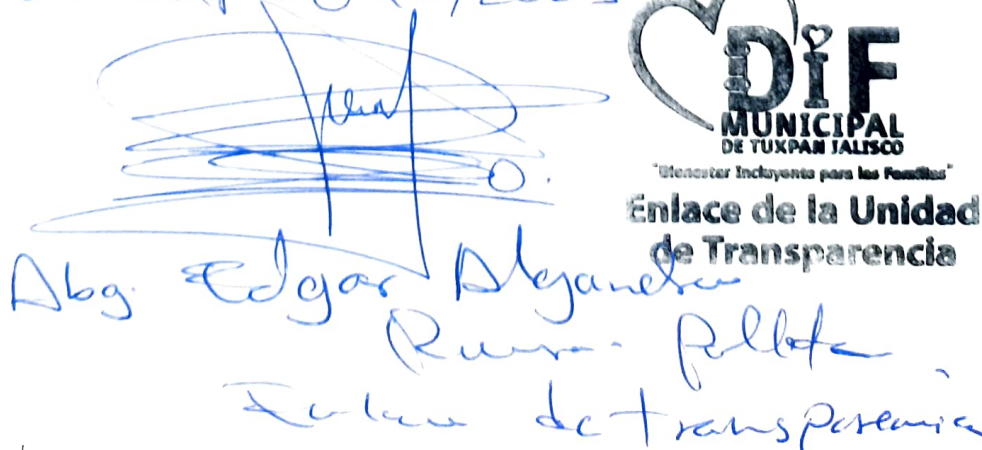 DiF
MUNICIPAL
DE TUXPAN JALISCO
"Bienestar Incluyente para las Familias"
Enlace de la Unidad
de Transparencia
Abg. Edgar Alejandro
Enlace de transparencia